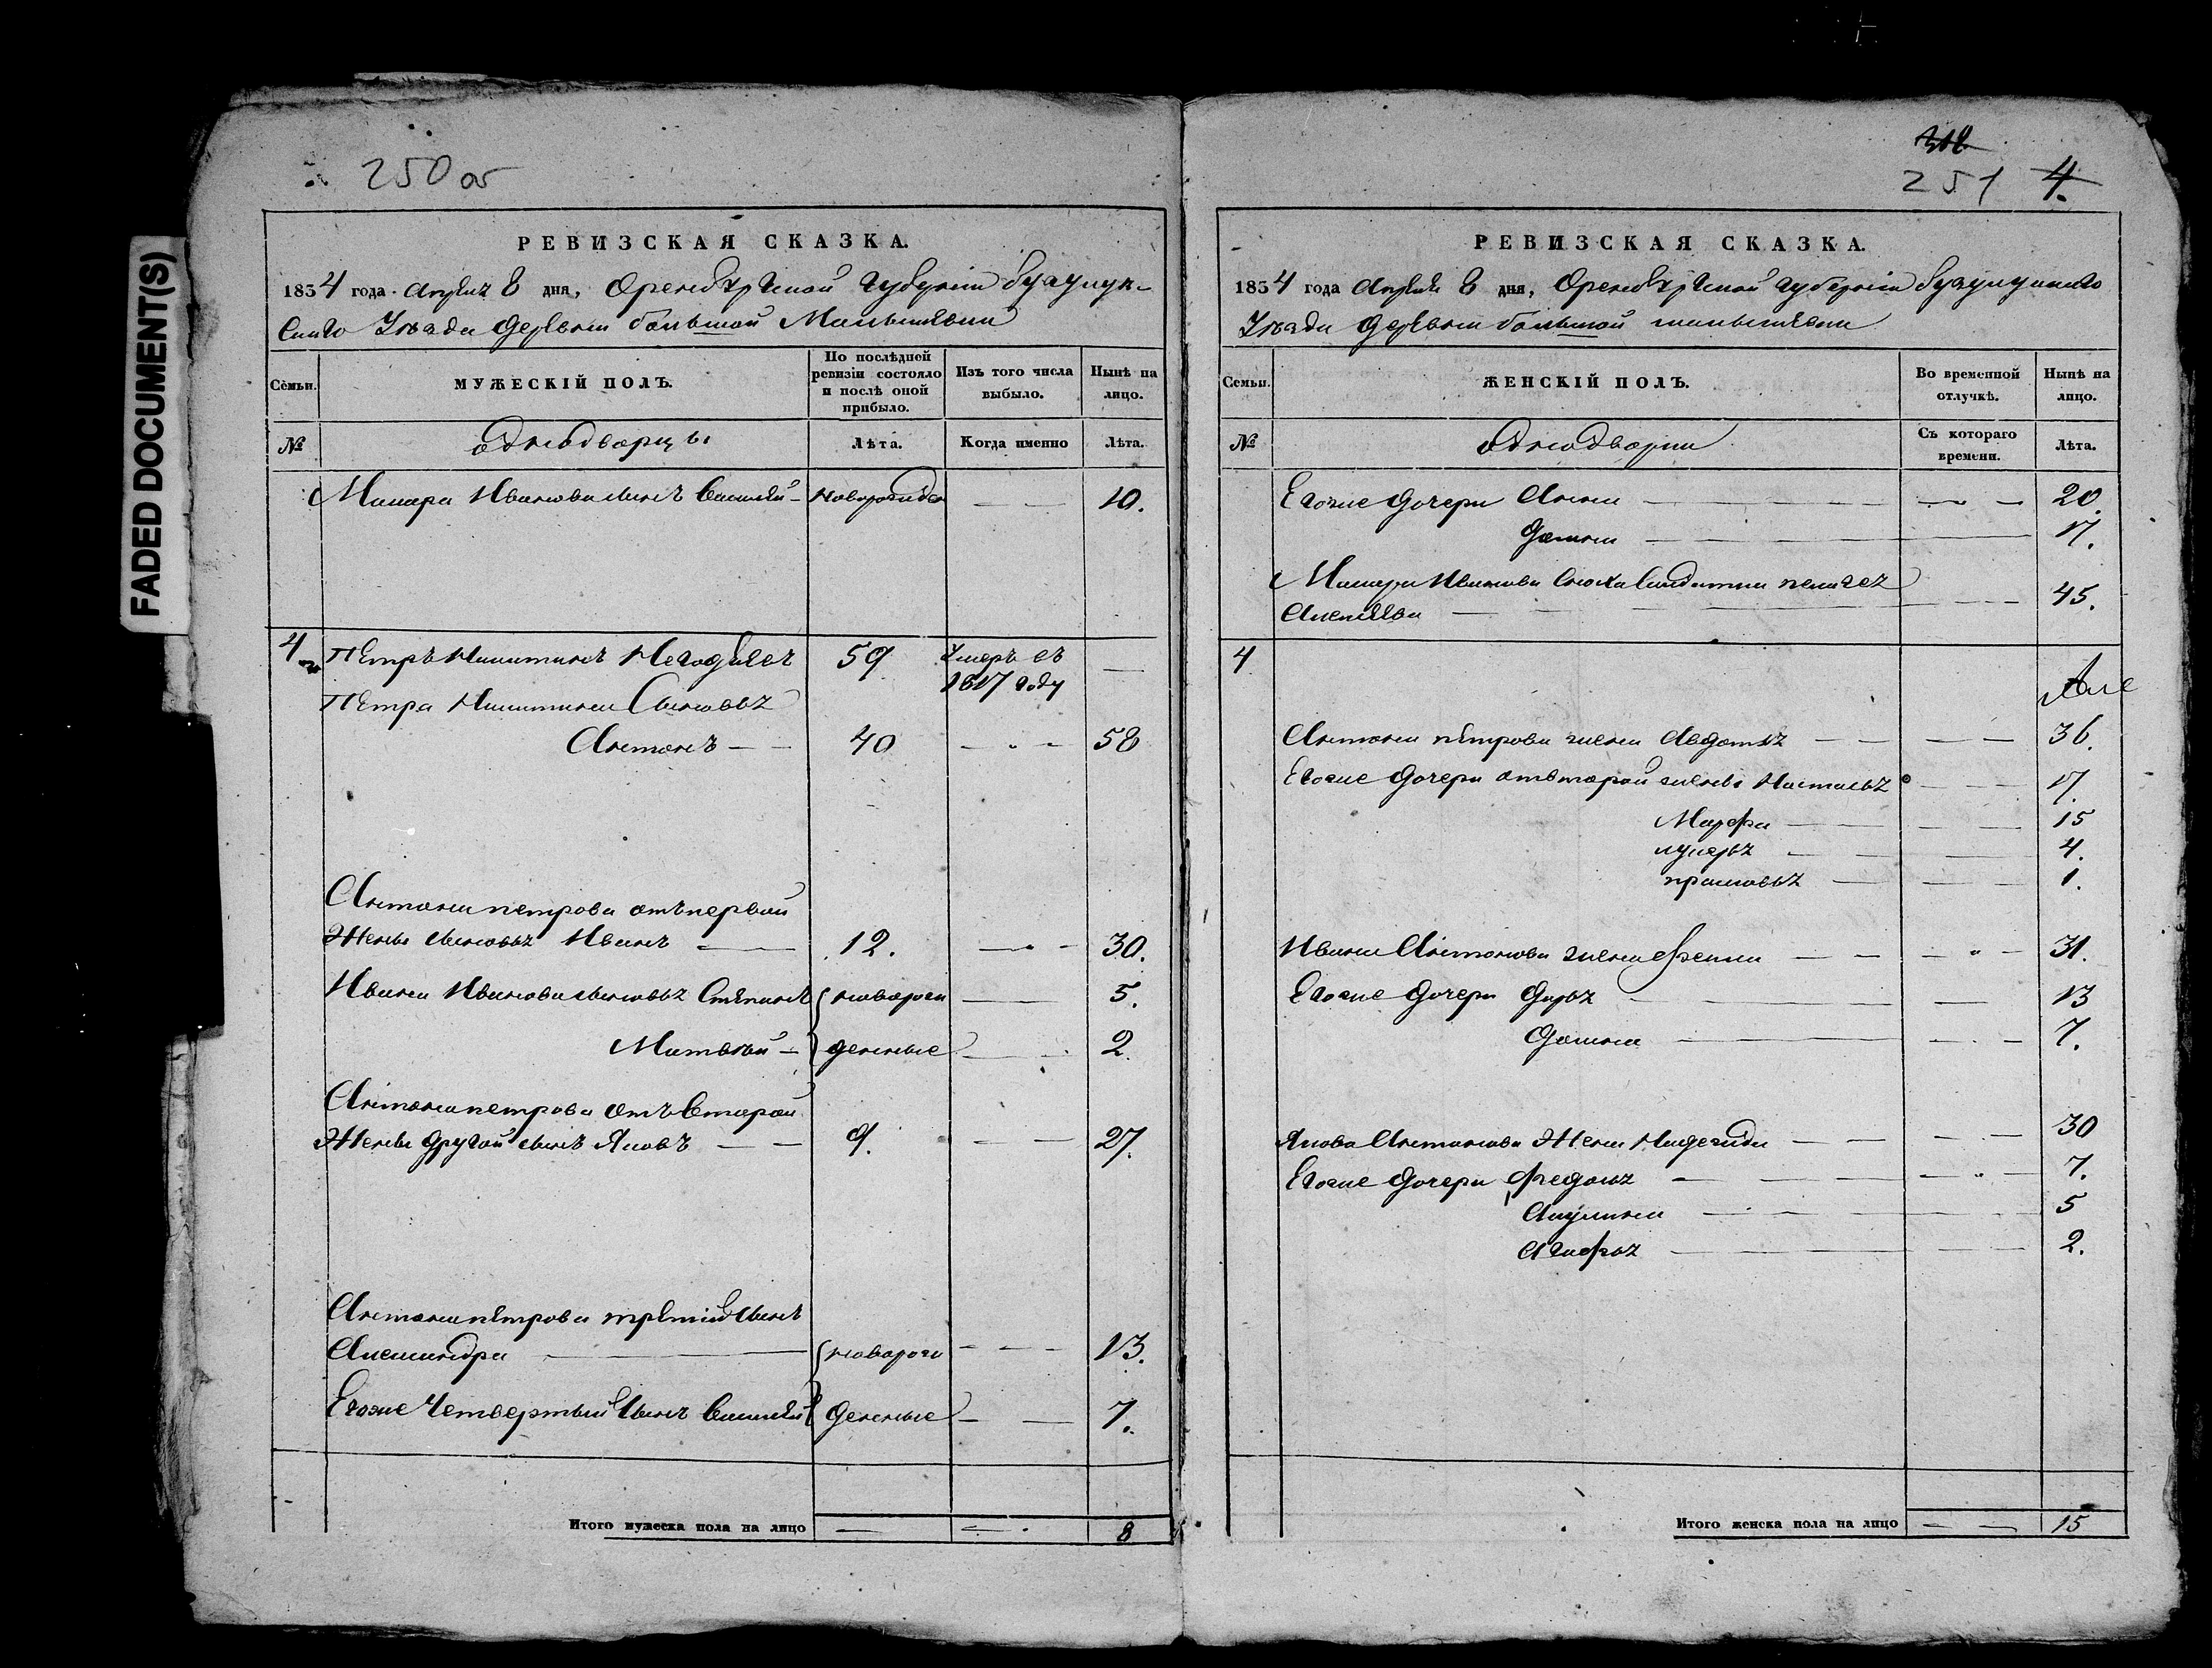 FADED DOCUMENT(S)
250 об
РЕВИЗСКАЯ СКАЗКА.
1834 года Апреля 8 дня, Оренбургской губернии бузулук-
скаго Уѣзда деревни большой Малышевки
Семьи. МУЖЕСКІЙ ПОЛЪ. По послѣдней ревизіи состояло и послѣ оной прибыло. Изъ того числа выбыло. Нынѣ на лицо.
№ однодворцы Лѣта. Когда именно Лѣта.
Макара Иванова сынъ Василей — новорожден — — 10.
4 Петръ Никитинъ Негодяевъ 59 Умеръ въ 1817 году —
Петра Никитина Сыновья
Антонъ — — 40 — „ — 58
Антона петрова отъ первой
Жены сыновья Иванъ — 12. — „ — 30.
Ивана Иванова сыновья Степанъ новорож — 5.
Матвей — денные — 2
Антона петрова отъ второй
Жены другой сынъ Яковъ — — 9. — — 27.
Антона петрова третий сынъ
Александра — новорож — — — 13.
Егоже Четвертый Сынъ Василей денные — — 7.
Итого мужеска пола на лицо — — 8
251 4.
РЕВИЗСКАЯ СКАЗКА.
1834 года Апреля 8 дня, Оренбургской губернии бузулукскаго
Уѣзда деревни большой малышевки
Семьи. ЖЕНСКІЙ ПОЛЪ. Во временной отлучкѣ. Нынѣ на лицо.
№ однодворки Съ котораго времени. Лѣта.
Егоже дочери Анна — — „ — 20.
Домна — — 17.
Макара Иванова сноха Солдатка пелагея
Алексеева — — — 45.
4
Антона петрова жена Авдотья — — — — 36.
Егоже дочери отвторой жены Настасья — — 17.
Марфа — — — 15
лукерья — — — 4.
прасковья — — — 1.
Ивана Антонова жена Фекла — — — „ — 31.
Егоже дочери Дарья — — 13
Домна — — — 7.
Якова Антонова Жена Надежда — — — — 30
Егоже дочери Федосья — — — „ — 7.
Акулина — — — 5
Агафья — — — 2.
Итого женска пола на лицо — — 15